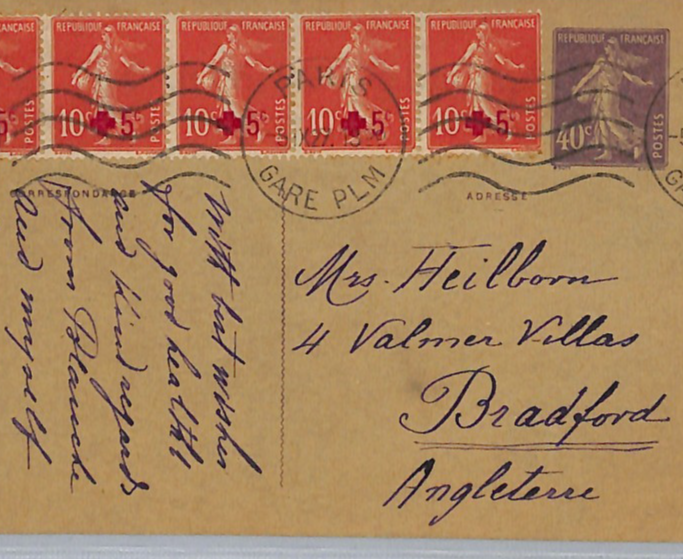 REPUBLIQUE FRANÇAISE REPUBLIQUE FRANÇAISE REPUBLIQUE FRANÇAISE REPUBLIQUE FRANÇAISE REPUBLIQUE FRANÇAISE
5 POSTES 10c 5c POSTES 10c 5c POSTES 10c 5c POSTES 10c 5c POSTES 40c POSTES
PARIS
GARE PLM
CORRESPONDANCE
ADRESSE
With best wishes
for good health
and kind regards
from Blanche
and myself
Mrs. Heilborn
4 Valmer Villas
Bradford
Angleterre